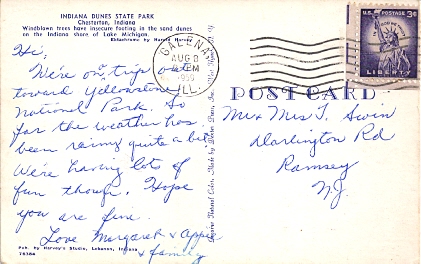 INDIANA DUNES STATE PARK
Chesterton, Indiana
Windblown trees have insecure footing in the sand dunes
on the Indiana shore of Lake Michigan.
Ektachrome by
Hi,
We're on trip out
toward Yellowstone
National Park. So
far the weather has
been rainy quite a bit.
We're having lots of
fun though. Hope
you are fine.
Love Margaret &
& family
Pub. by Harvey's Studio, Lebanon, Indiana
76384
GALENA
AUG 8
PM
ILL.
U.S. POSTAGE 3¢
LIBERTY
POST CARD
Mr & Mrs J. Swin
Darlington Rd
Ramsey
N.J.